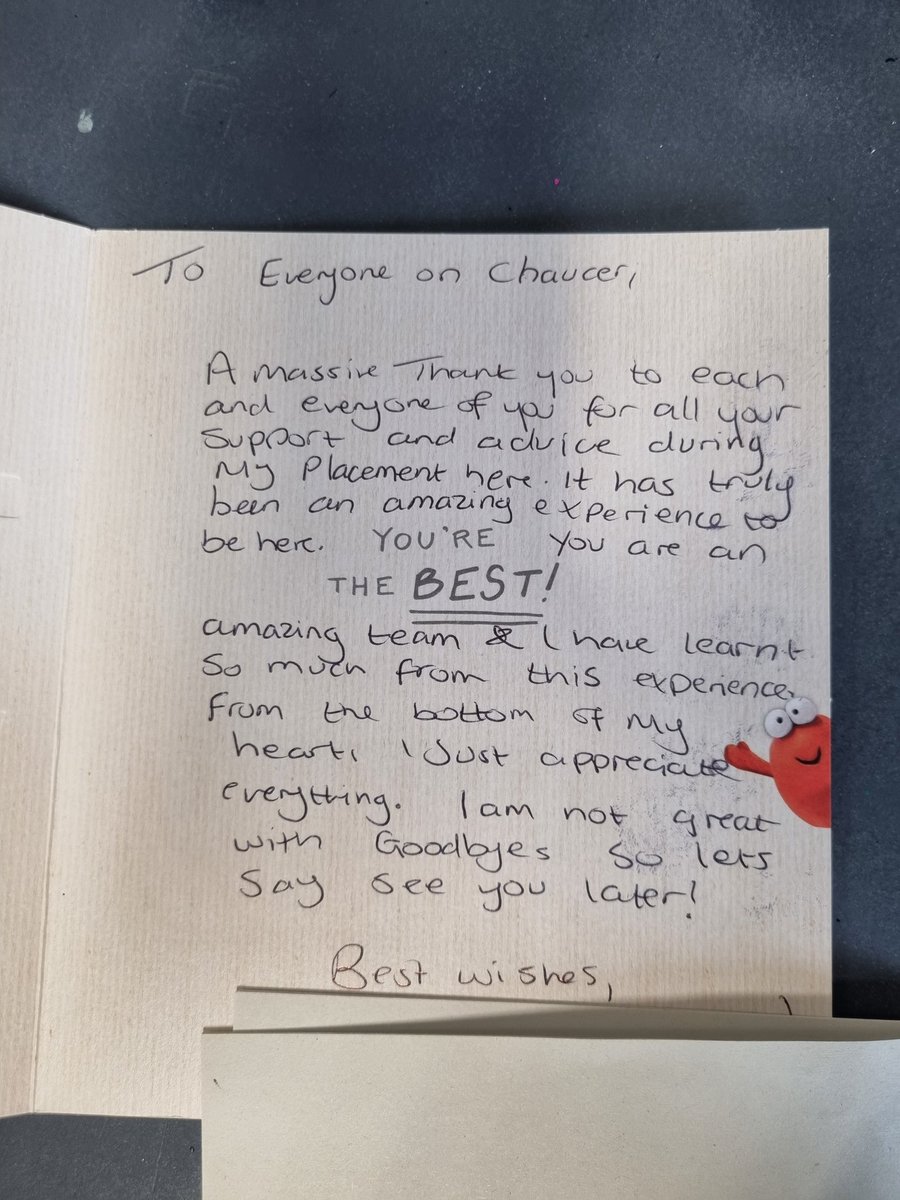 To Everyone on Chaucer,
A massive Thank you to each
and everyone of you for all your
Support and advice during
My Placement here. It has truly
been an amazing experience to
be here. YOU'RE you are an
THE BEST!
amazing team & I have learnt
So much from this experience,
From the bottom of My
heart, I Just appreciate
everything. I am not great
with Goodbyes so lets
Say see you later!
Best wishes,